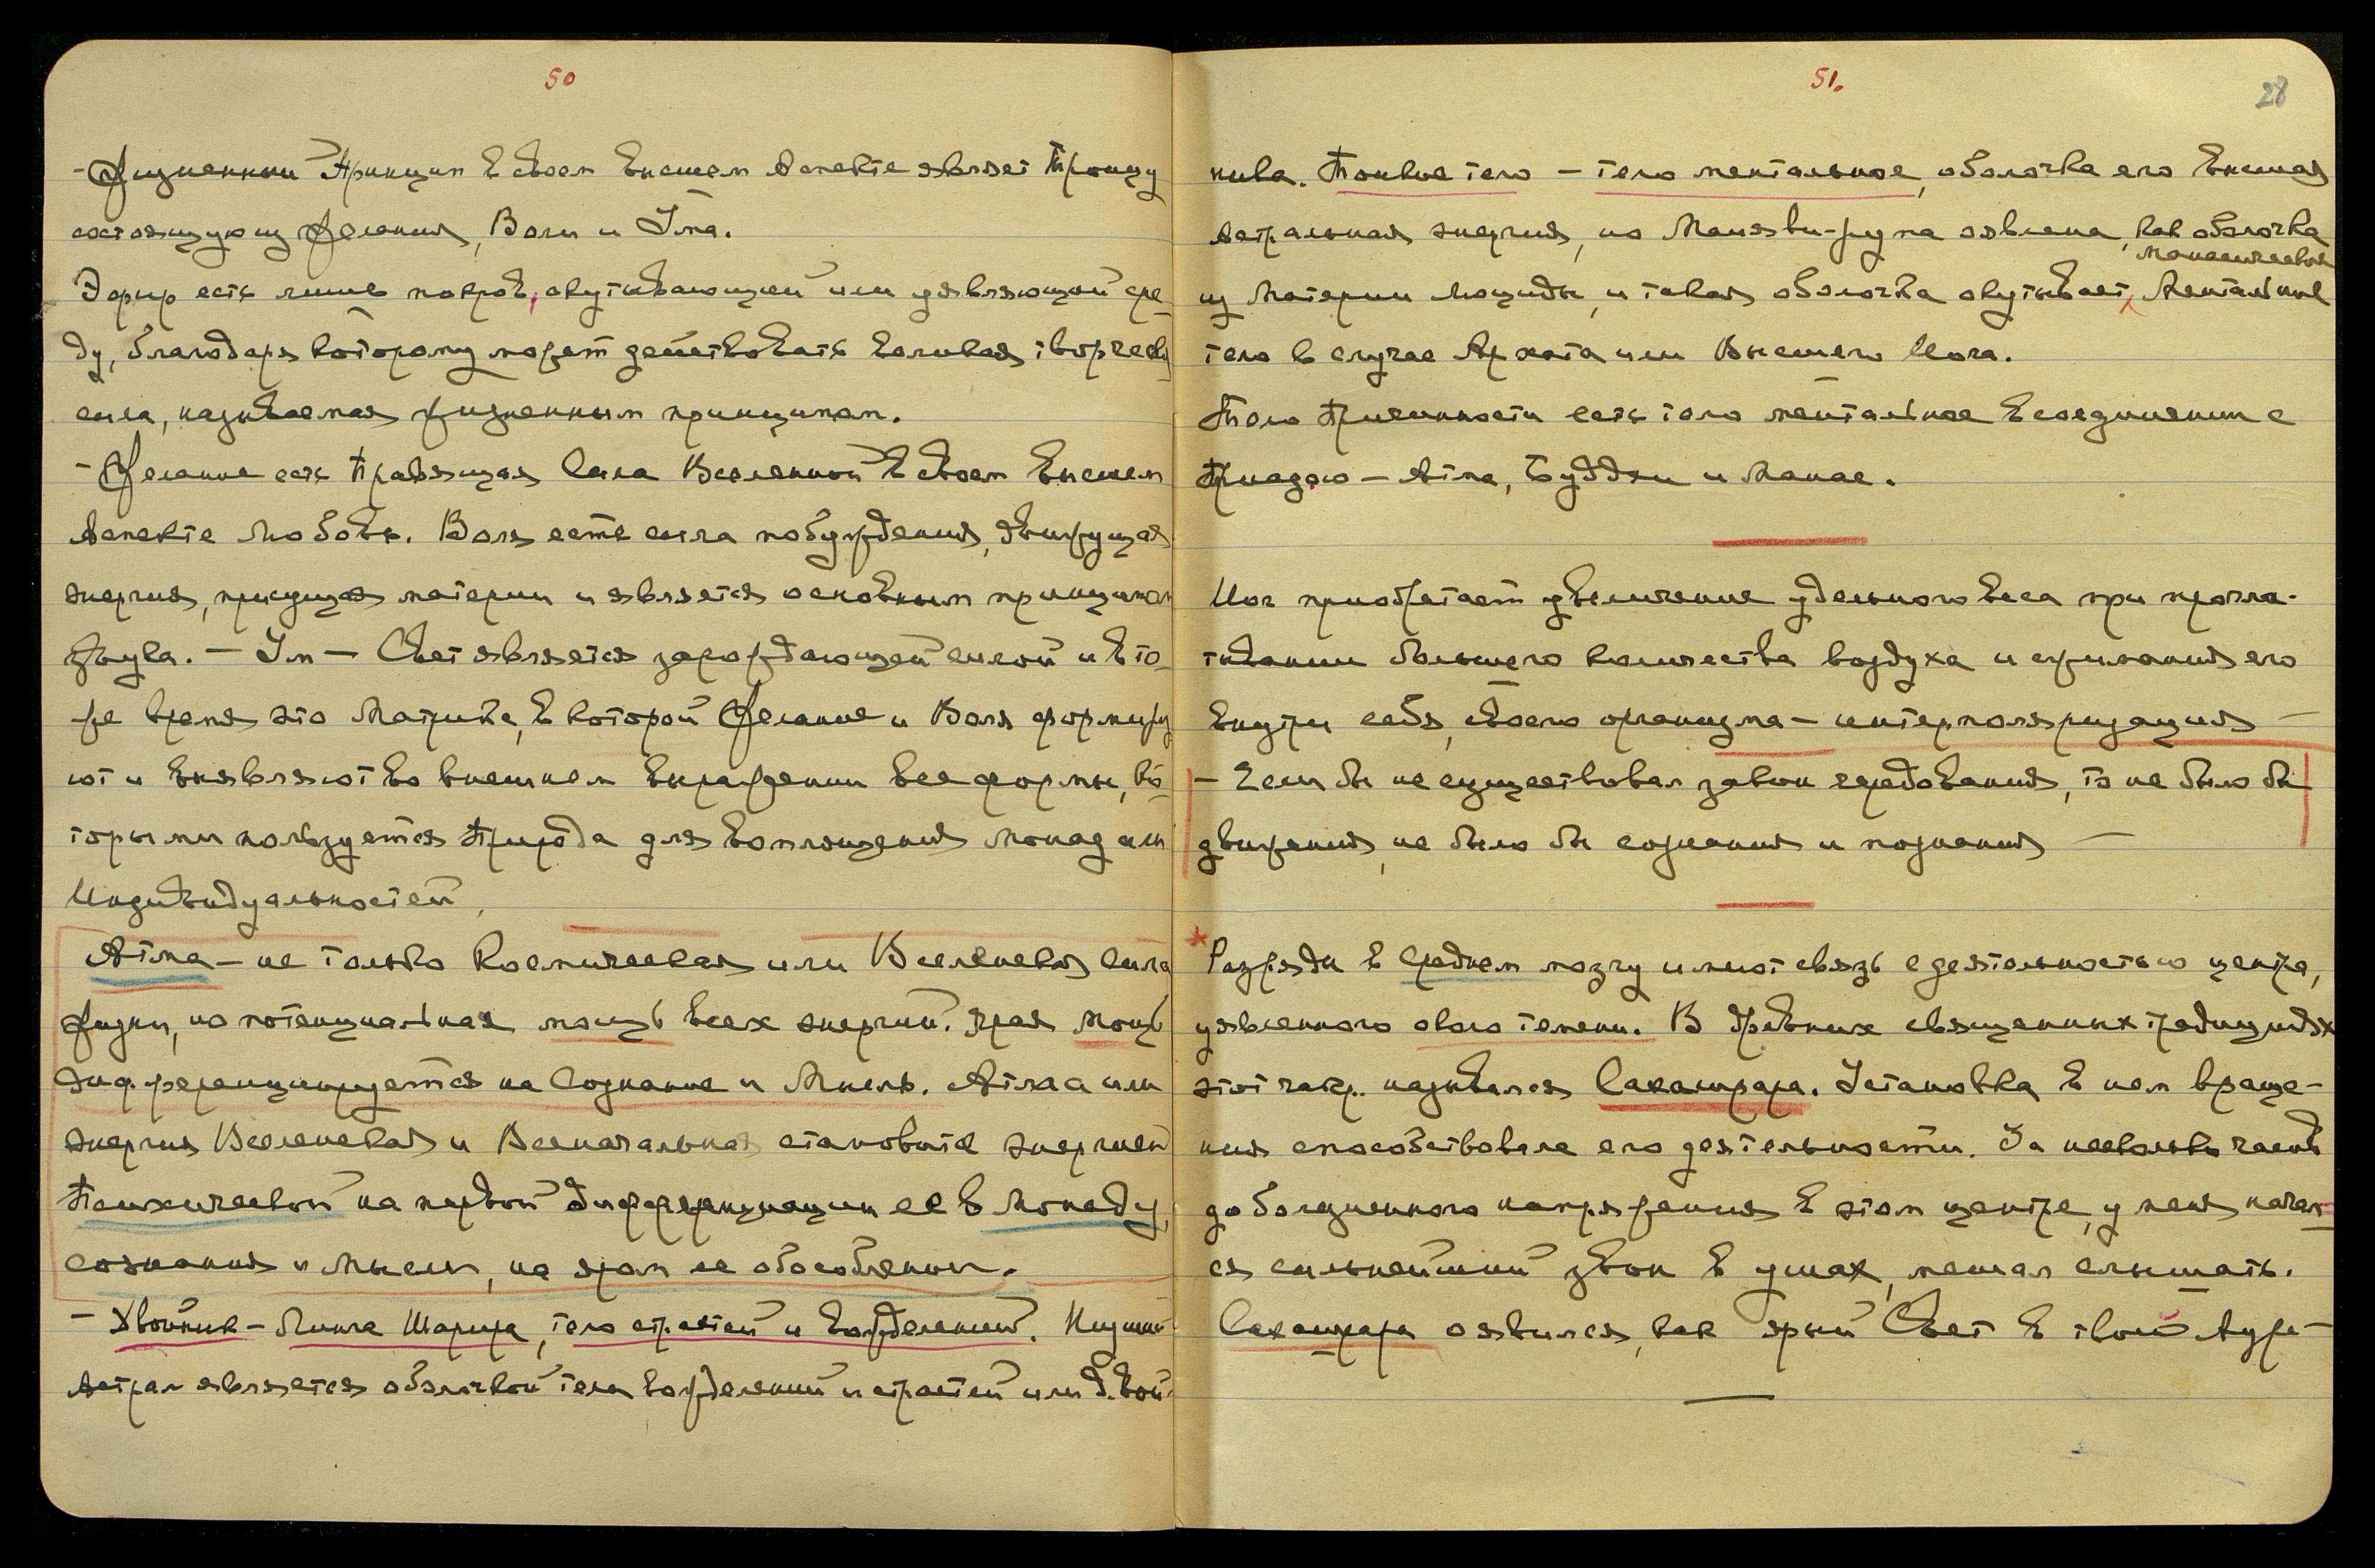 50
- Жизненный Принцип в своем высшем Аспекте являет Троицу
состоящую из Желания, Воли и Ума.
Эфир есть лишь покров, окутывающий или уявляющий сре-
ду, благодаря которому может действовать великая творческ
сила, называемая жизненным принципом.
- Желание есть Правящая Сила Вселенной в своем высшем
Аспекте Любовь. Воля есть сила побуждения, движущая
энергия, присущая материи и является основным принципом
звука. - Ум - Свет является зарождающей силой и в то-
же время это Матрица, в которой Желание и Воля формиру
ют и выявляют во внешнем выражении все формы, ко-
торыми пользуется Природа для воплощения монад или
Индивидуальностей,
Атма - не только Космическая или Вселенская Сила
Жизни, но потенциальная мощь всех энергий. Ярая Мощь
дифференцируется на Сознание и Мысль. Атма или
энергия Вселенская и Всеначальная становится энергией
Психической на первой дифференциации ее в Монаду,
сознания и мысли, не яром ее обособлении.
- Двойник - Линга Шарира, тело страстей и вожделений. Низший
Астрал является оболочкой тела вожделений и страстей или двой-
51.
28
ника. Тонкое тело - тело ментальное, оболочка его высшая
астральная энергия, но Маияви-рупа оявлена, как оболочка
из Материи Люциды, и такая оболочка окутывает Ментальное
Манасическое
тело в случае Архата или Высшего Йога.
Тело Причинности есть тело ментальное в соединении с
Триадою - Атма, Буддхи и Манас.
Йог приобретает увеличение удельного веса при прогла-
тывании большего количества воздуха и сжимания его
внутри себя, своего организма - интерполяризация -
- Если бы не существовал закон чередования, то не было бы
движения, не было бы сознания и познания -
* Разряды в Среднем мозгу имеют связь с деятельностью центра,
уявленного около темени. В древних священных традициях
этот чакр. назывался Сахасрара. Установка в нем враще-
ния способствовала его деятельности. За несколько часов
до болезненного напряжения в этом центре, у меня начал-
ся сильнейший звон в ушах, мешал слышать.
Сахасрара оявился, как ярый Свет в твоей Ауре -